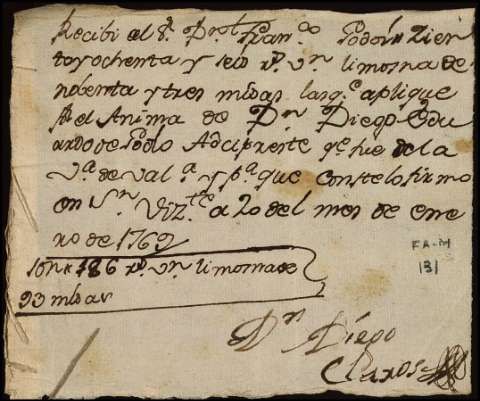 Recibi del Sr. Dr. Dl. Franco Godoi Zien
to y ochenta y seis rs. vn. limosna de
nobenta y tres misas las qe. aplique
Pr. el Anima de Dn. Diego Edu
ardo de Godo Adciprente qe. fue de la
Va. de Vala. y pa. que conste lo firmo
en Sn. Vizte. a 20 del mes de ene
ro de 1769
son 186 rs. vn. limosna de
93 misas
FA-M
131
Dn.
Diego
Claros